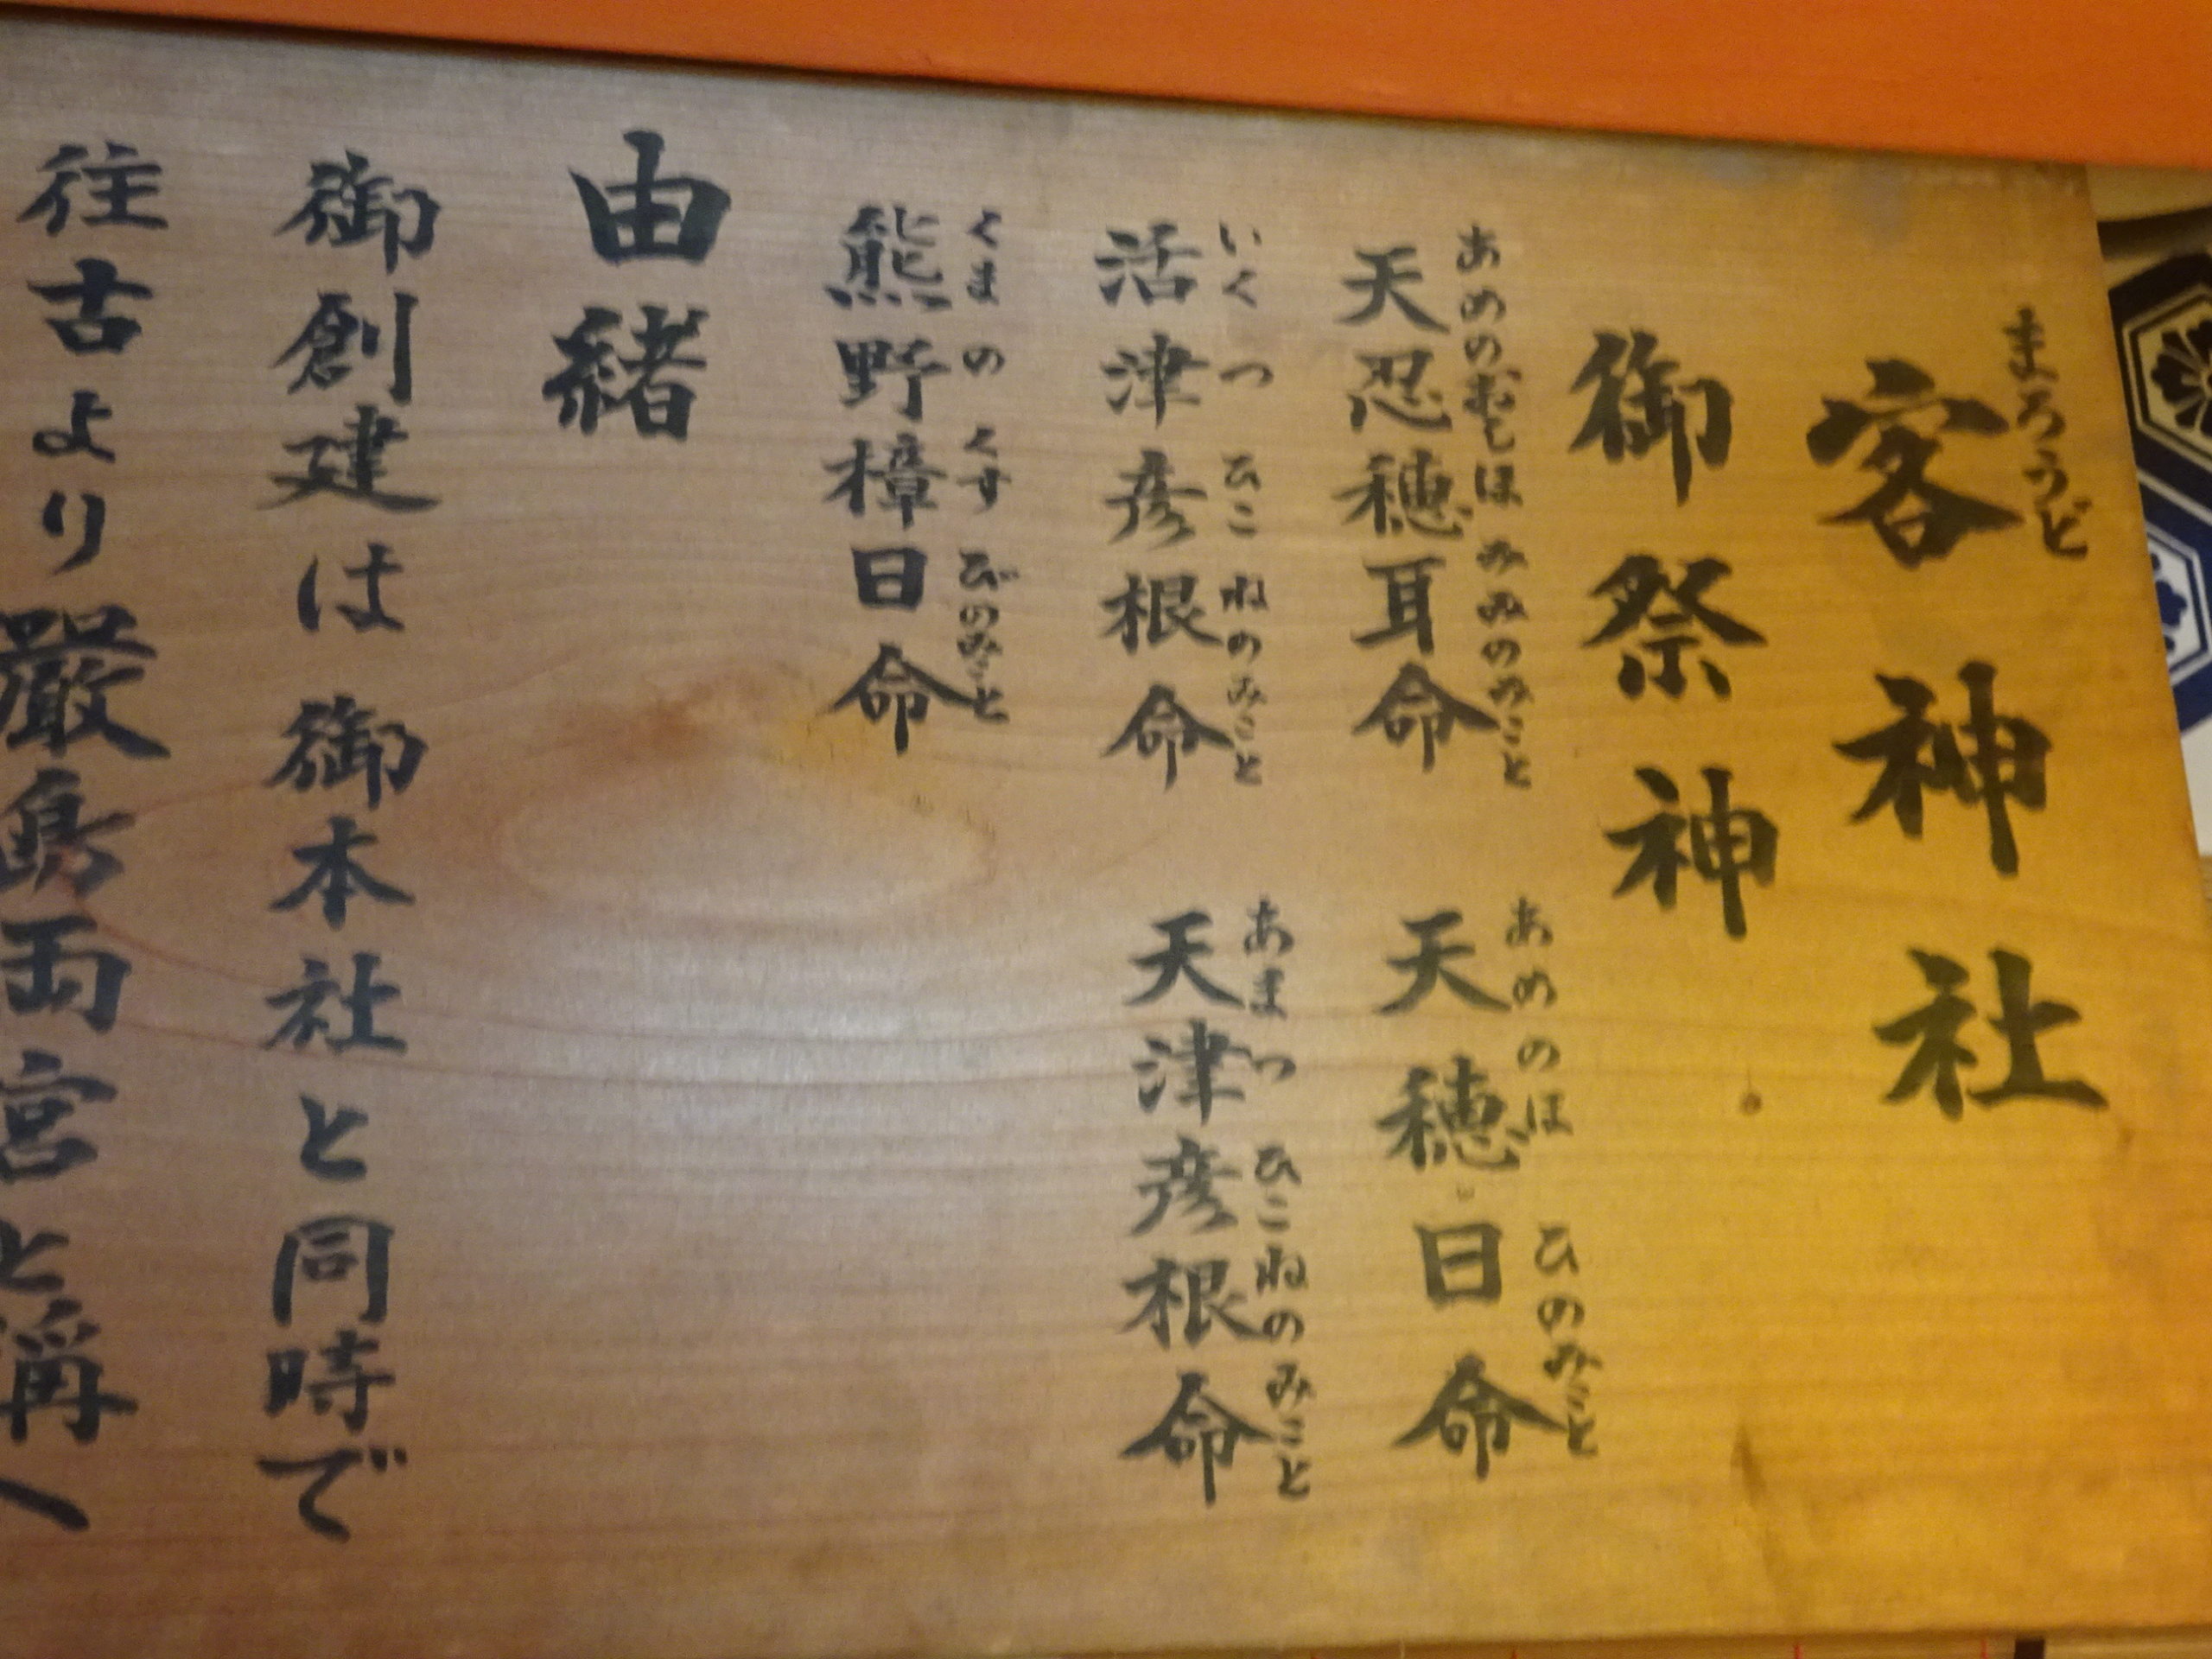 客神社
まろうど
御祭神
天忍穂耳命 天穂日命
あめのおしほみみのみこと あめのほひのみこと
活津彦根命 天津彦根命
いくつひこねのみこと あまつひこねのみこと
熊野樟日命
くまのくすびのみこと
由緒
御創建は御本社と同時で
往古より厳島両宮と稱へ